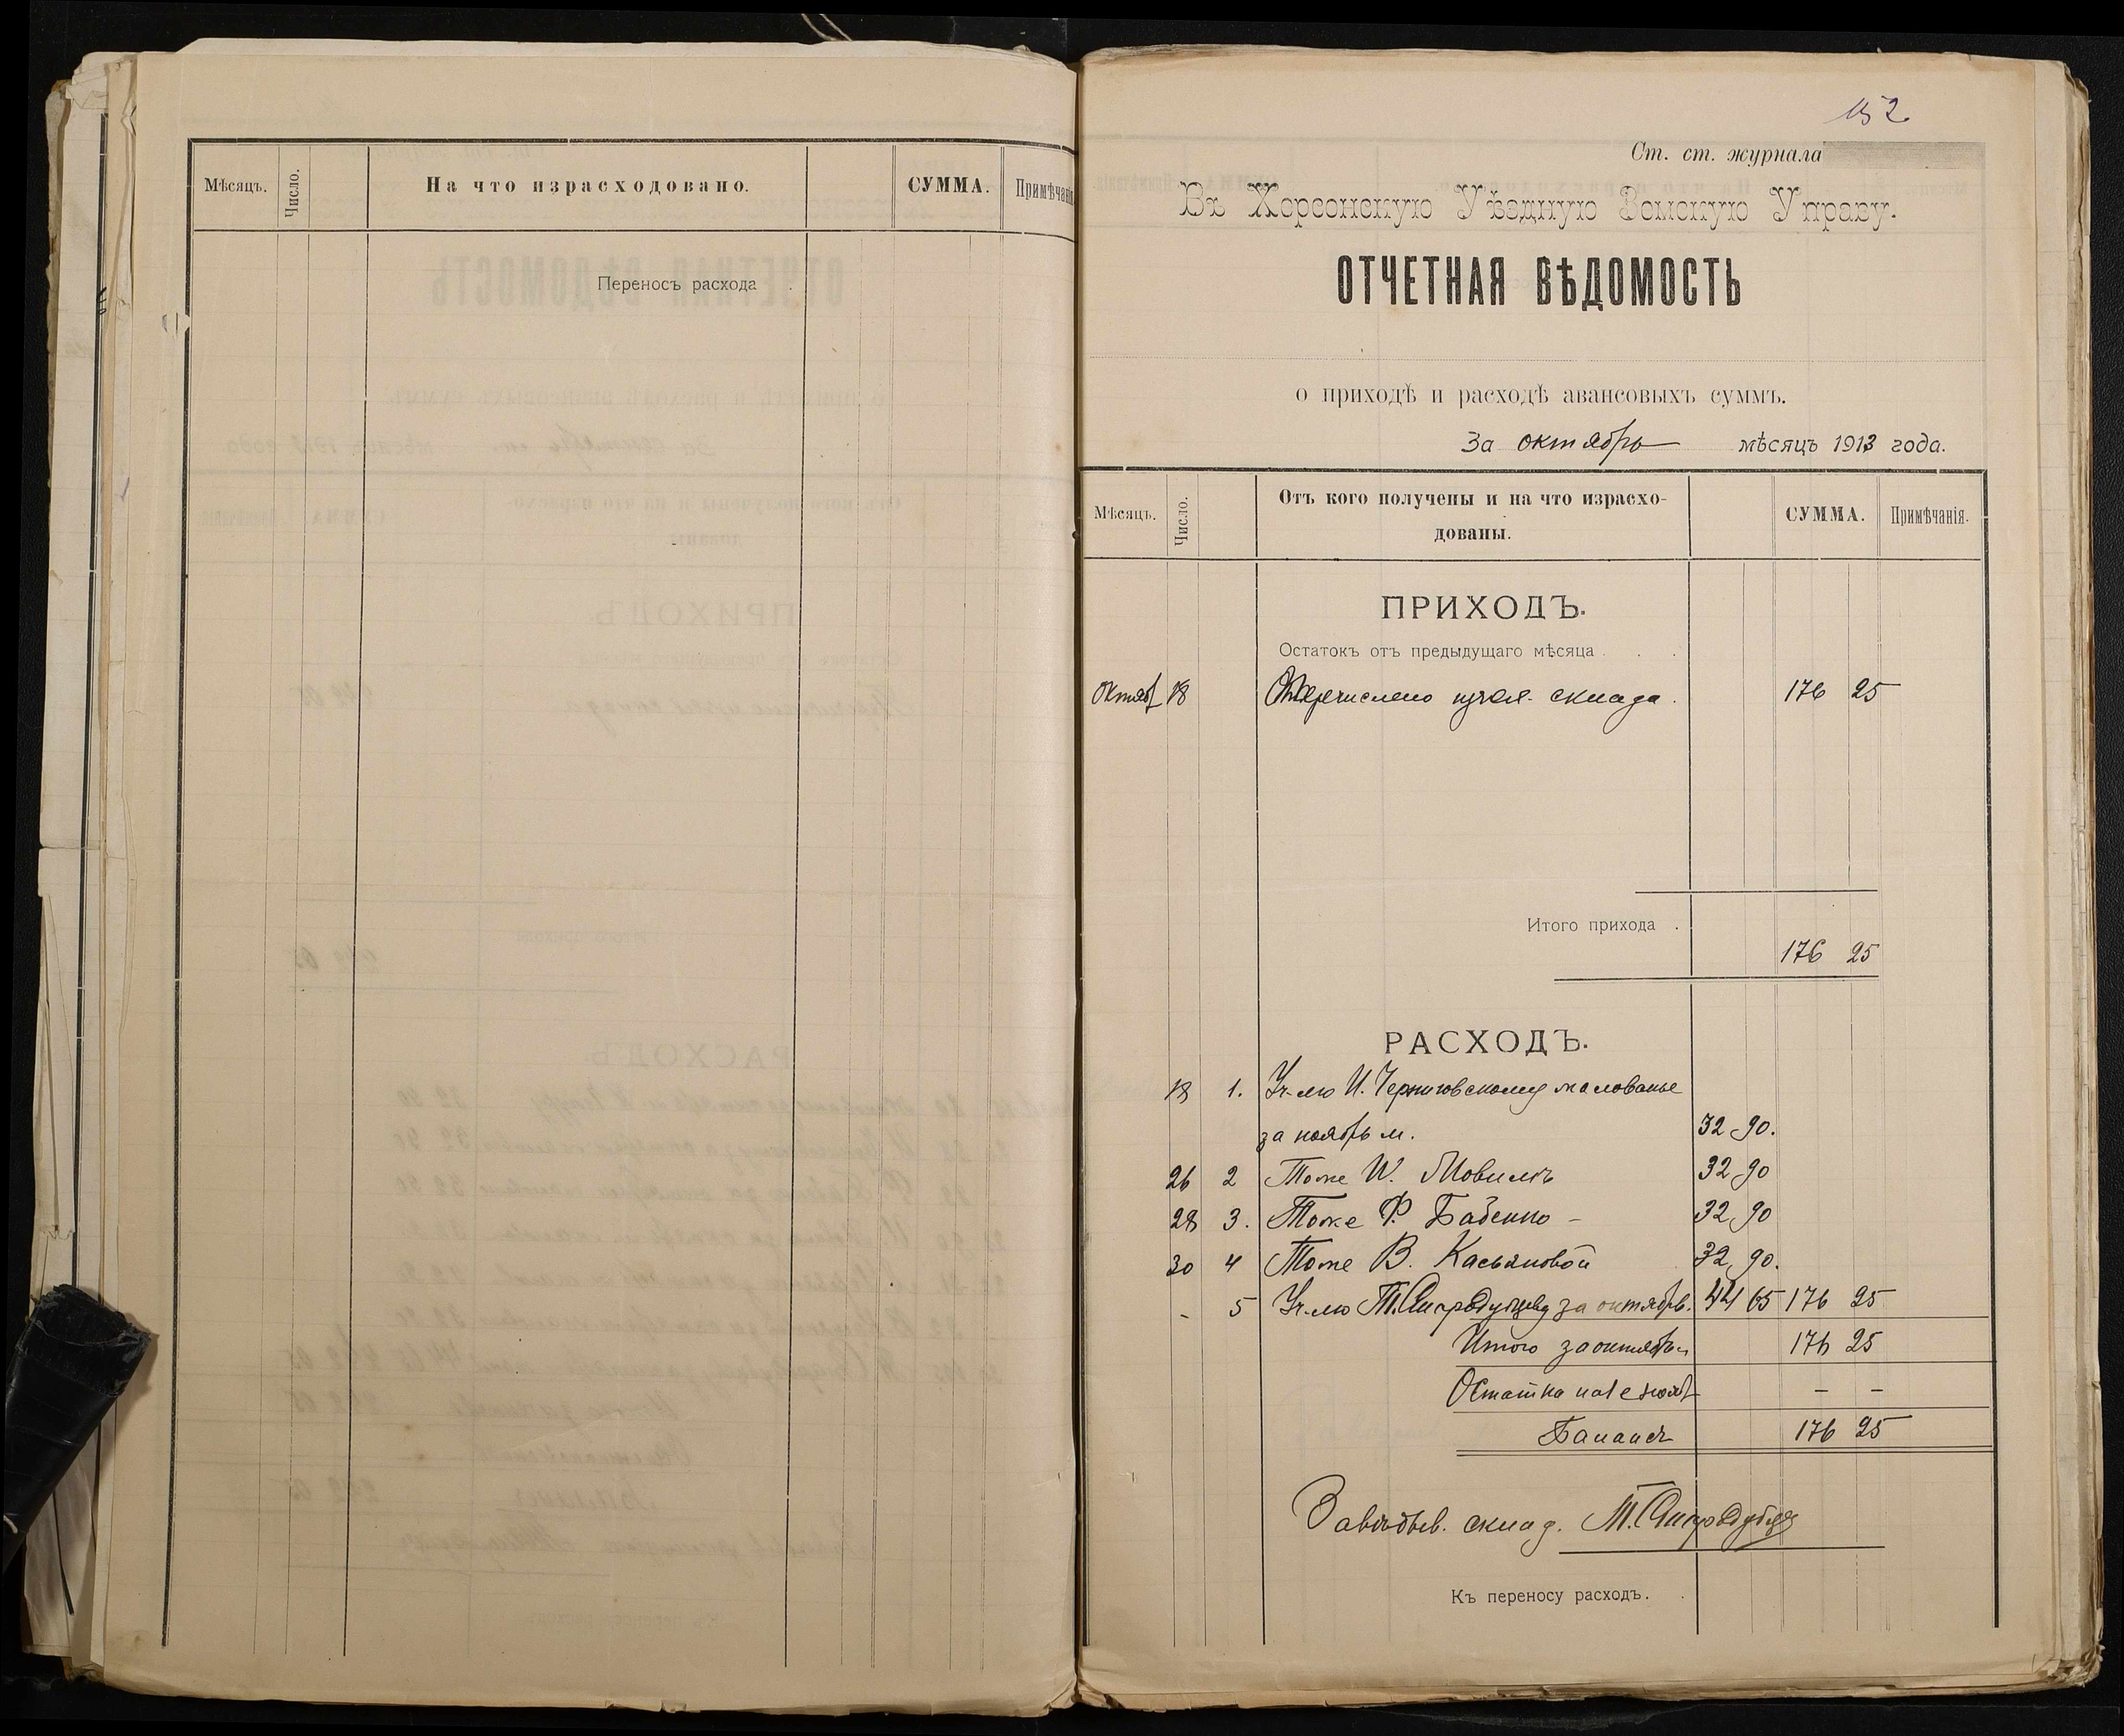 Мѣсяцъ. Число. На что израсходовано. СУММА. Примѣчані
Переносъ расхода .
152
Ст. ст. журнала
Въ Херсонскую Уѣздную Земскую Управу.
ОТЧЕТНАЯ ВѢДОМОСТЬ
о приходѣ и расходѣ авансовыхъ суммъ.
За октябрь мѣсяцъ 1913 года.
Мѣсяцъ. Число. Отъ кого получены и на что израсхо-
дованы. СУММА. Примѣчанія.
ПРИХОДЪ.
Остатокъ отъ предыдущаго мѣсяца . . .
Октяб 18 Перечислено склада 176 25
Итого прихода .
176 25
РАСХОДЪ.
18 1. Уч-лю И. Черниговскому жалованье
за ноябрь м. 32 90.
26 2 Тоже И. 32 90
28 3. Тоже Ф. Бабенко - 32 90
30 4 Тоже В. Касьяновой 32 90.
- 5 Уч-лю Т. за октябрь. 44 65 176 25
Итого за октябрь 176 25
Остатка на 1е нояб - -
Балансъ 176 25
Завѣдыв. склад. Т.
Къ переносу расходъ. .